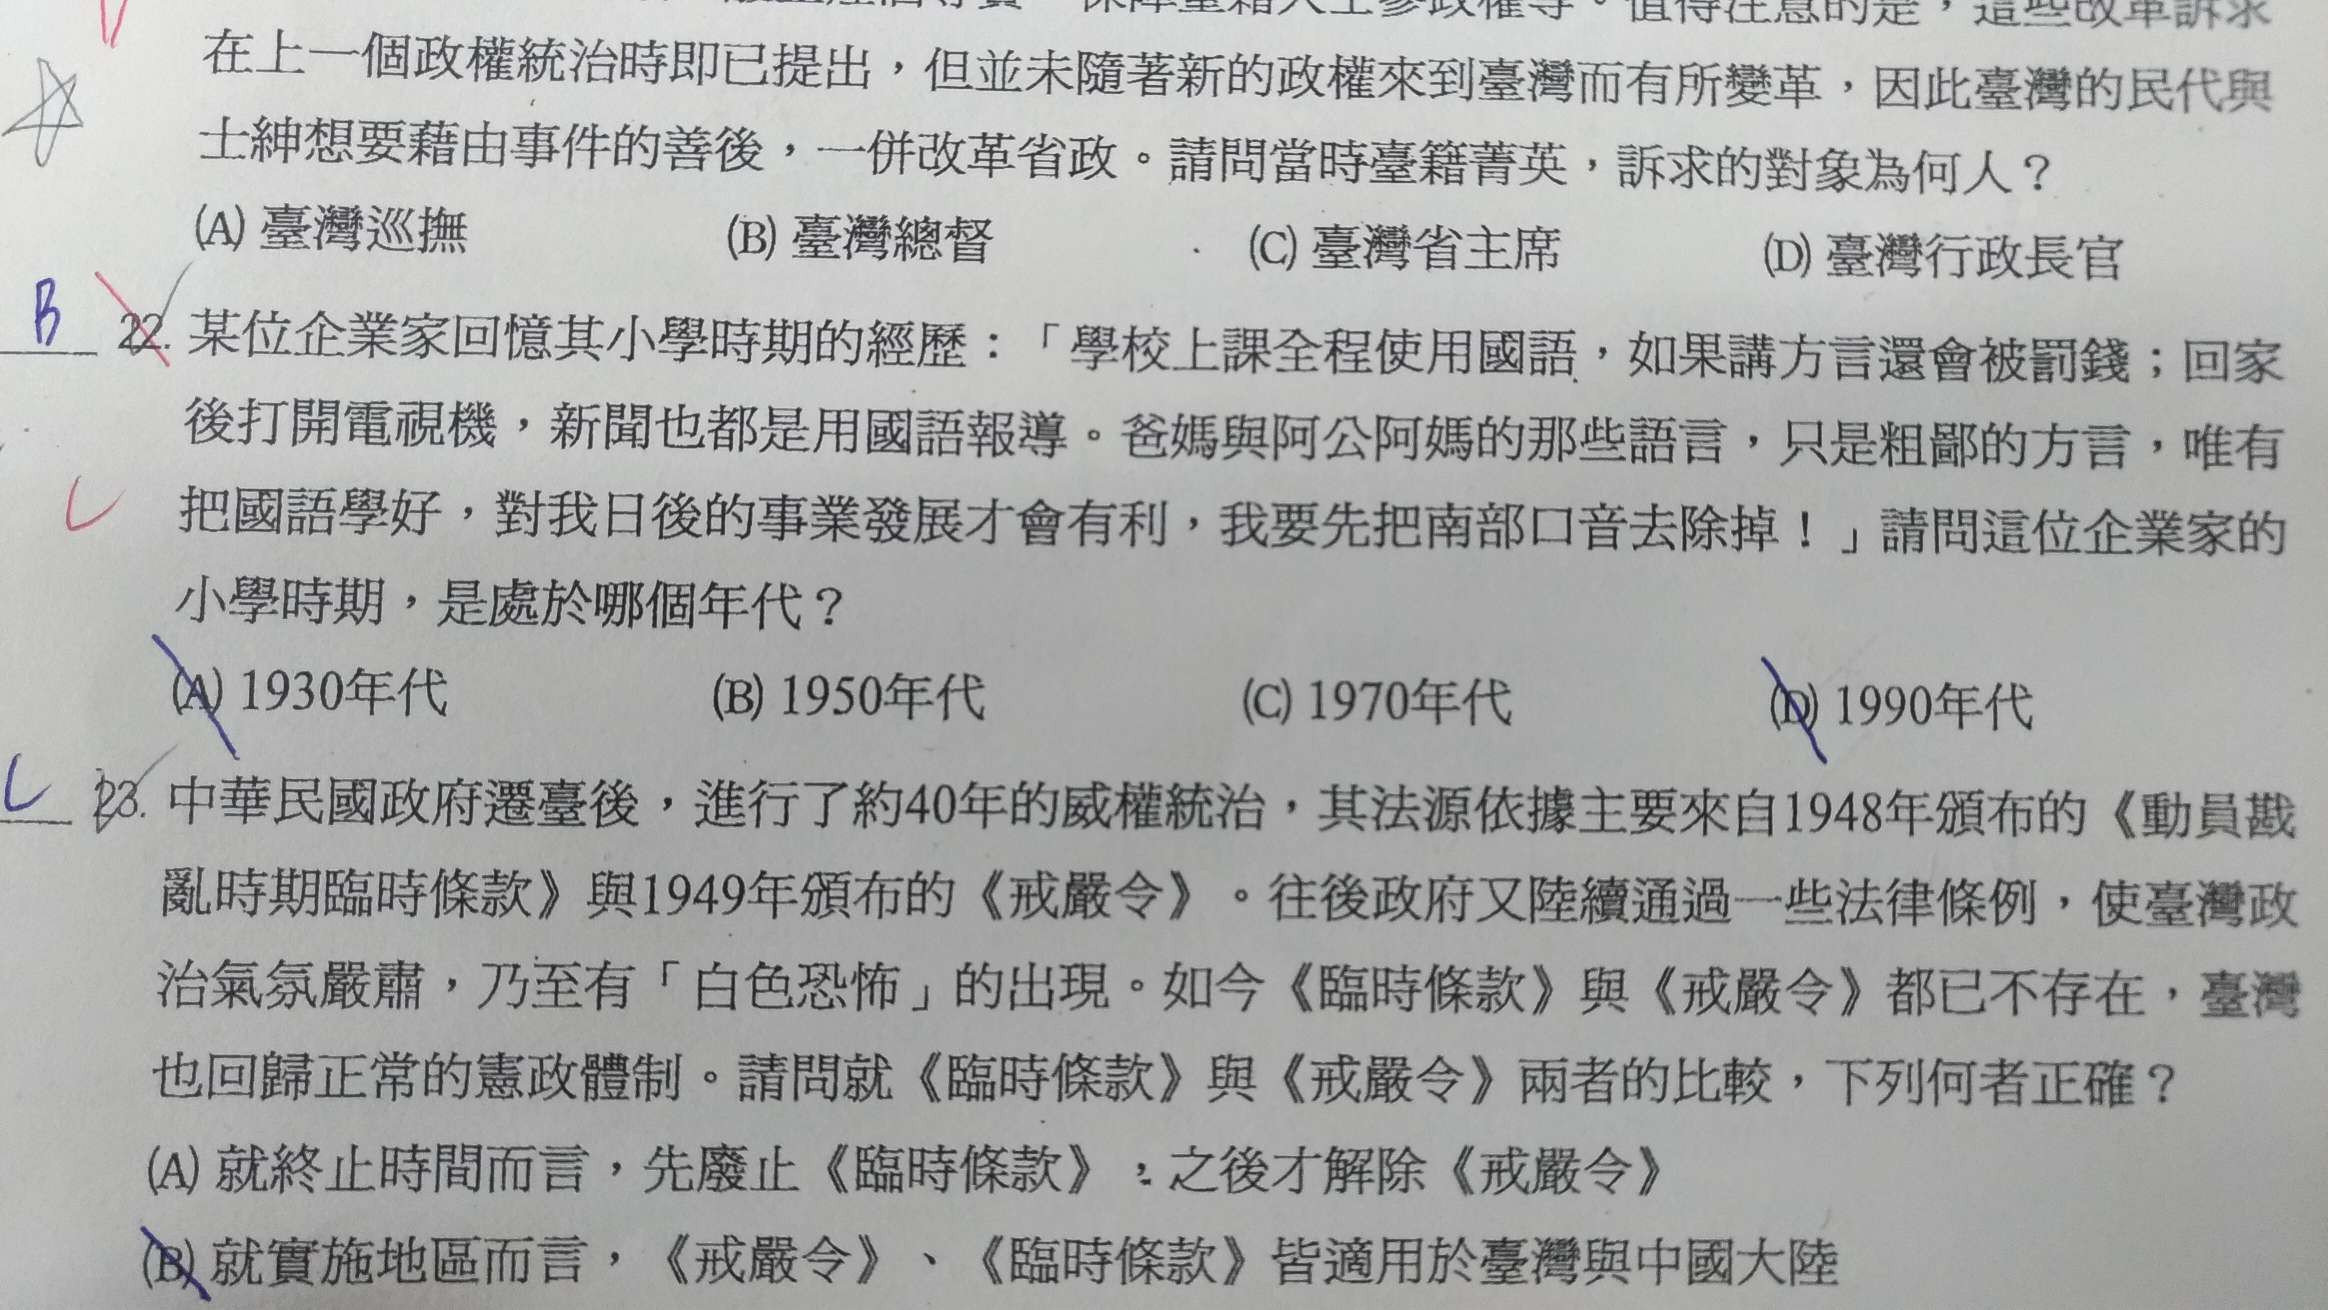 保障臺籍人士參政權等。值得注意的是，這些改革訴求
在上一個政權統治時即已提出，但並未隨著新的政權來到臺灣而有所變革，因此臺灣的民代與
士紳想要藉由事件的善後，一併改革省政。請問當時臺籍菁英，訴求的對象為何人？
(A) 臺灣巡撫 (B) 臺灣總督 (C) 臺灣省主席 (D) 臺灣行政長官
B 22. 某位企業家回憶其小學時期的經歷：「學校上課全程使用國語，如果講方言還會被罰錢；回家
後打開電視機，新聞也都是用國語報導。爸媽與阿公阿媽的那些語言，只是粗鄙的方言，唯有
把國語學好，對我日後的事業發展才會有利，我要先把南部口音去除掉！」請問這位企業家的
小學時期，是處於哪個年代？
(A) 1930年代 (B) 1950年代 (C) 1970年代 (D) 1990年代
C 23. 中華民國政府遷臺後，進行了約40年的威權統治，其法源依據主要來自1948年頒布的《動員戡
亂時期臨時條款》與1949年頒布的《戒嚴令》。往後政府又陸續通過一些法律條例，使臺灣政
治氣氛嚴肅，乃至有「白色恐怖」的出現。如今《臨時條款》與《戒嚴令》都已不存在，臺灣
也回歸正常的憲政體制。請問就《臨時條款》與《戒嚴令》兩者的比較，下列何者正確？
(A) 就終止時間而言，先廢止《臨時條款》，之後才解除《戒嚴令》
(B) 就實施地區而言，《戒嚴令》、《臨時條款》皆適用於臺灣與中國大陸